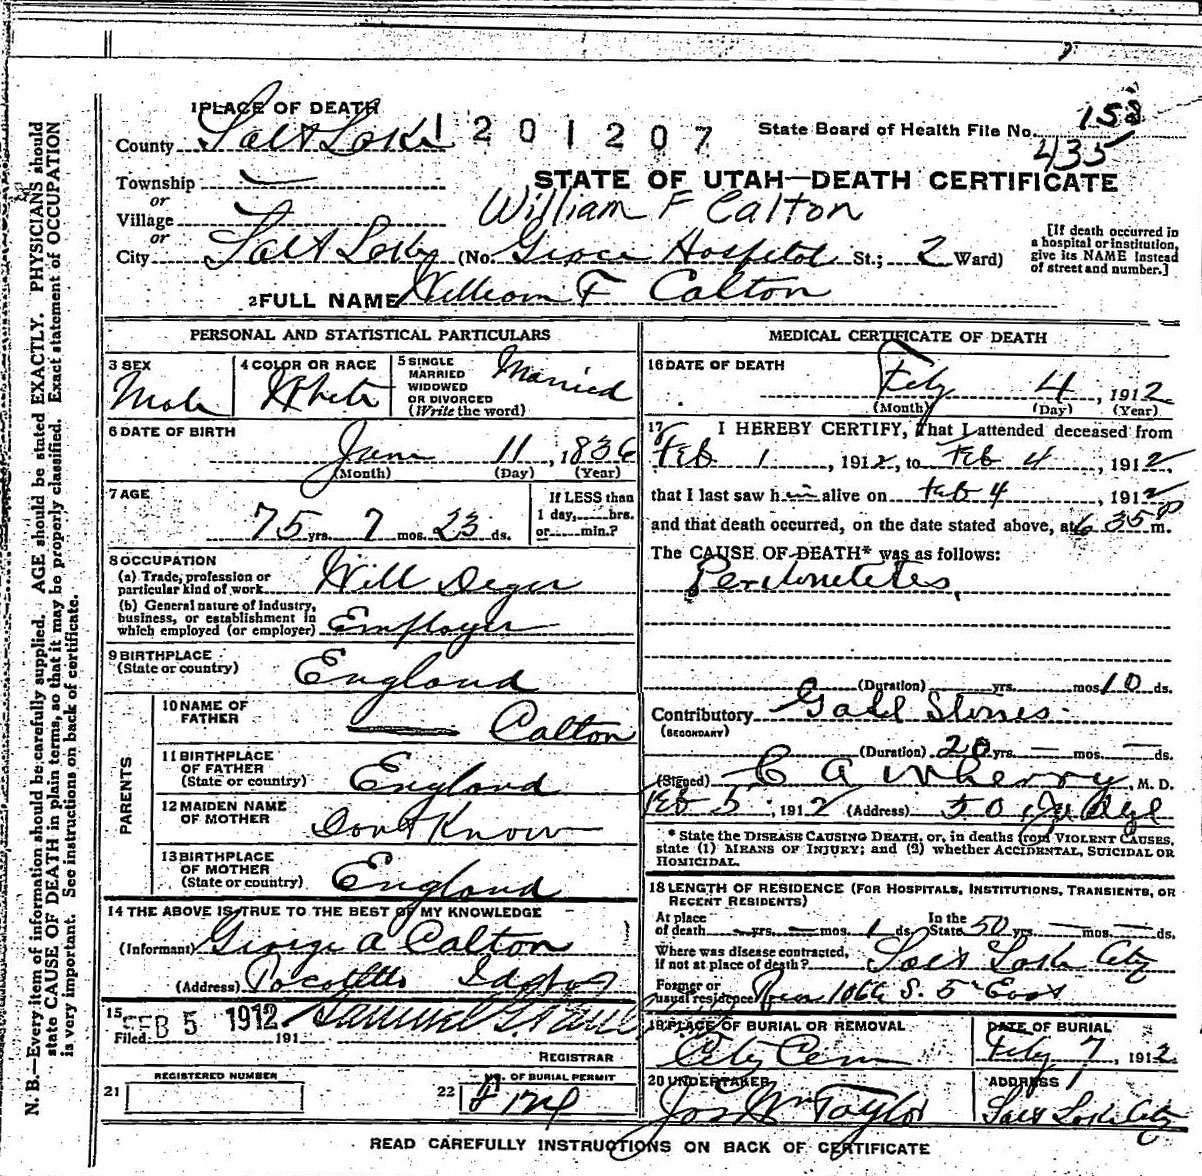 N. B.—Every item of information should be carefully supplied. AGE should be stated EXACTLY. PHYSICIANS should
state CAUSE OF DEATH in plain terms, so that it may be properly classified. Exact statement of OCCUPATION
is very important. See instructions on back of certificate.
1 PLACE OF DEATH
County Salt Lake 1201207 State Board of Health File No. 158
435
Township
or
STATE OF UTAH—DEATH CERTIFICATE
Village
or
William F Calton
City Salt Lake (No. Grace Hospital St.; 2 Ward)
[If death occurred in
a hospital or institution,
give its NAME instead
of street and number.]
2 FULL NAME William F Calton
PERSONAL AND STATISTICAL PARTICULARS
3 SEX
Male
4 COLOR OR RACE
White
5 SINGLE
MARRIED
WIDOWED
OR DIVORCED
(Write the word)
Married
6 DATE OF BIRTH
June 11, 1836
(Month) (Day) (Year)
7 AGE
75 yrs. 7 mos. 23 ds.
If LESS than
1 day,......hrs.
or......min.?
8 OCCUPATION
(a) Trade, profession or
particular kind of work Well Diger
(b) General nature of industry,
business, or establishment in
which employed (or employer) Employer
9 BIRTHPLACE
(State or country) England
PARENTS
10 NAME OF
FATHER — Calton
11 BIRTHPLACE
OF FATHER
(State or country) England
12 MAIDEN NAME
OF MOTHER Dont Know
13 BIRTHPLACE
OF MOTHER
(State or country) England
14 THE ABOVE IS TRUE TO THE BEST OF MY KNOWLEDGE
(Informant) George A Calton
(Address) Pocatello Idaho
15
Filed FEB 5 1912 191
Samuel G. Paul
REGISTRAR
REGISTERED NUMBER
21
22 NO. OF BURIAL PERMIT
MEDICAL CERTIFICATE OF DEATH
16 DATE OF DEATH
Feby 4, 1912
(Month) (Day) (Year)
17 I HEREBY CERTIFY, That I attended deceased from
Feb 1, 1912, to Feb 4, 1912
that I last saw him alive on Feb 4, 1912
and that death occurred, on the date stated above, at 6 35 P m.
The CAUSE OF DEATH* was as follows:
Peritonitis
(Duration) yrs. mos. 10 ds.
Contributory Gall Stones
(SECONDARY)
(Duration) 20 yrs. — mos. — ds.
(Signed) C A Wherry, M. D.
Feb 5, 1912 (Address) 50 Judge
* State the DISEASE CAUSING DEATH, or, in deaths from VIOLENT CAUSES,
state (1) MEANS OF INJURY; and (2) whether ACCIDENTAL, SUICIDAL OR
HOMICIDAL.
18 LENGTH OF RESIDENCE (FOR HOSPITALS, INSTITUTIONS, TRANSIENTS, OR
RECENT RESIDENTS)
At place
of death — yrs. — mos. 1 ds. In the
State 50 yrs. — mos. — ds.
Where was disease contracted,
if not at place of death? Salt Lake City
Former or
usual residence Rear 1066 S. 5" East
19 PLACE OF BURIAL OR REMOVAL
City Cem
DATE OF BURIAL
Feby 7, 1912
20 UNDERTAKER
Jos Wm Taylor
ADDRESS
Salt Lake City
READ CAREFULLY INSTRUCTIONS ON BACK OF CERTIFICATE